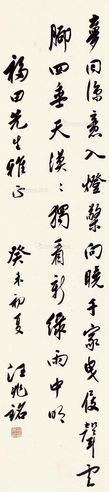 夢回深意入燈檠向曉千家曳履聲雲
腳四垂天漠漠獨看新綠雨中明
福田先生雅正
癸未初夏 汪兆銘